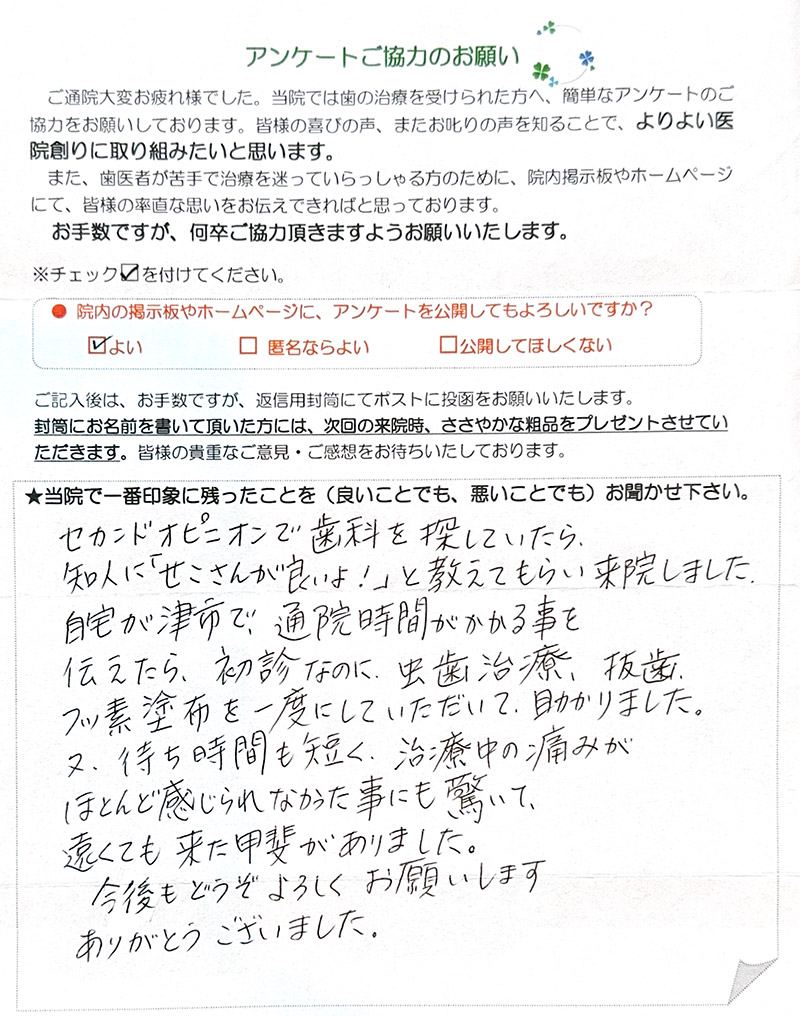 アンケートご協力のお願い
ご通院大変お疲れ様でした。当院では歯の治療を受けられた方へ、簡単なアンケートのご
協力をお願いしております。皆様の喜びの声、またお叱りの声を知ることで、よりよい医
院創りに取り組みたいと思います。
また、歯医者が苦手で治療を迷っていらっしゃる方のために、院内掲示板やホームページ
にて、皆様の率直な思いをお伝えできればと思っております。
お手数ですが、何卒ご協力頂きますようお願いいたします。
※チェック☑を付けてください。
● 院内の掲示板やホームページに、アンケートを公開してもよろしいですか？
☑よい □ 匿名ならよい □公開してほしくない
ご記入後は、お手数ですが、返信用封筒にてポストに投函をお願いいたします。
封筒にお名前を書いて頂いた方には、次回の来院時、ささやかな粗品をプレゼントさせてい
ただきます。皆様の貴重なご意見・ご感想をお待ちいたしております。
★当院で一番印象に残ったことを（良いことでも、悪いことでも）お聞かせ下さい。
セカンドオピニオンで歯科を探していたら、
知人に「せこさんが良いよ！」と教えてもらい来院しました。
自宅が津市で、通院時間がかかる事を
伝えたら、初診なのに、虫歯治療、抜歯、
フッ素塗布を一度にしていただいて、助かりました。
又、待ち時間も短く、治療中の痛みが
ほとんど感じられなかった事にも驚いて、
遠くても来た甲斐がありました。
今後もどうぞよろしくお願いします
ありがとうございました。